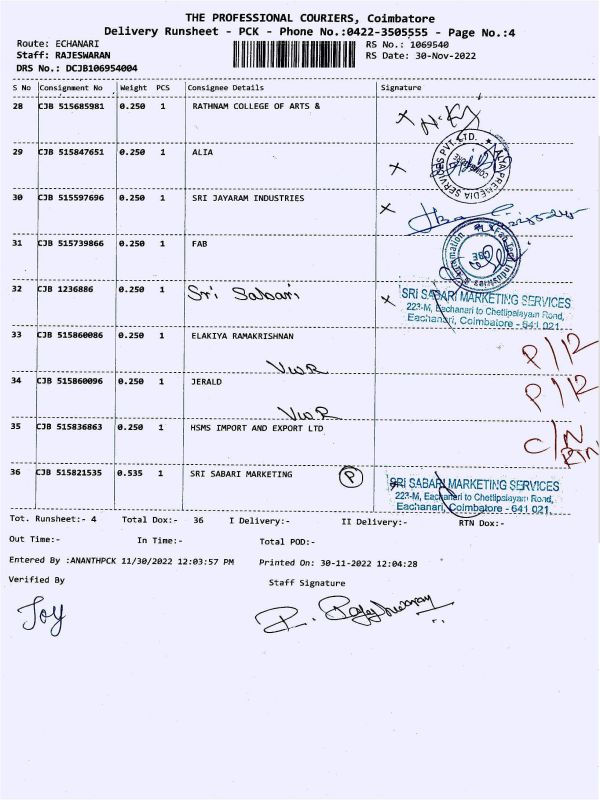 THE PROFESSIONAL COURIERS, Coimbatore
Delivery Runsheet - PCK - Phone No.:0422-3505555 - Page No.:4
Route: ECHANARI RS No.: 1069540
Staff: RAJESWARAN RS Date: 30-Nov-2022
DRS No.: DCJB106954004
S No Consignment No Weight PCS Consignee Details Signature
28 CJB 515685981 0.250 1 RATHNAM COLLEGE OF ARTS &
29 CJB 515847651 0.250 1 ALIA
30 CJB 515597696 0.250 1 SRI JAYARAM INDUSTRIES
31 CJB 515739866 0.250 1 FAB
32 CJB 1236886 0.250 1 Sri Sabari
SRI SABARI MARKETING SERVICES
223-M, Eachanari to Chettipalayam Road,
Eachanari, Coimbatore - 641 021.
33 CJB 515860086 0.250 1 ELAKIYA RAMAKRISHNAN
P/R
34 CJB 515860096 0.250 1 JERALD
P/R
35 CJB 515836863 0.250 1 HSMS IMPORT AND EXPORT LTD
C/N
RTN
36 CJB 515821535 0.535 1 SRI SABARI MARKETING P
SRI SABARI MARKETING SERVICES
223-M, Eachanari to Chettipalayam Road,
Eachanari, Coimbatore - 641 021.
Tot. Runsheet:- 4 Total Dox:- 36 I Delivery:- II Delivery:- RTN Dox:-
Out Time:- In Time:- Total POD:-
Entered By :ANANTHPCK 11/30/2022 12:03:57 PM Printed On: 30-11-2022 12:04:28
Verified By Staff Signature
Joy